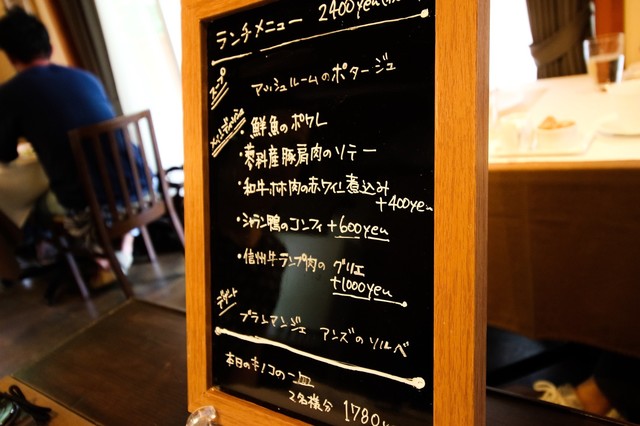 ランチメニュー 2400yen
スープ
マッシュルームのポタージュ
メインディッシュ
・鮮魚のポワレ
・蓼科産豚肩肉のソテー
・和牛ホホ肉の赤ワイン煮込み
+400yen
・シャラン鴨のコンフィ +600yen
・信州牛ランプ肉の グリエ
+1000yen
デザート
ブランマンジェ アンズのソルベ
本日のキノコの一皿
2名様分 1780y